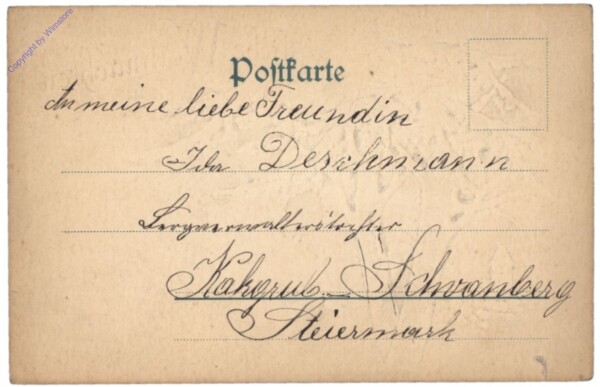 Copyright by Wimstore
Postkarte
An meine liebe Freundin
Ida Deschmann
Bergverwalterstochter
Kalkgrub. Schwanberg
Steiermark